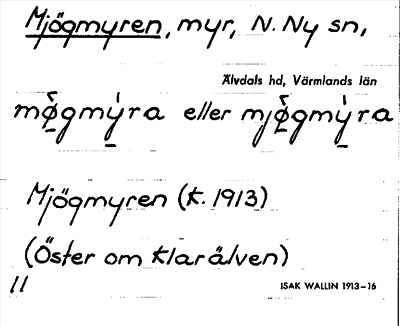 Mjögmyren, myr, N. Ny sn,
Älvdals hd, Värmlands län
mø̀gmýra eller mjø̀gmýra
Mjögmyren (k. 1913)
(Öster om Klarälven)
11
ISAK WALLIN 1913–16